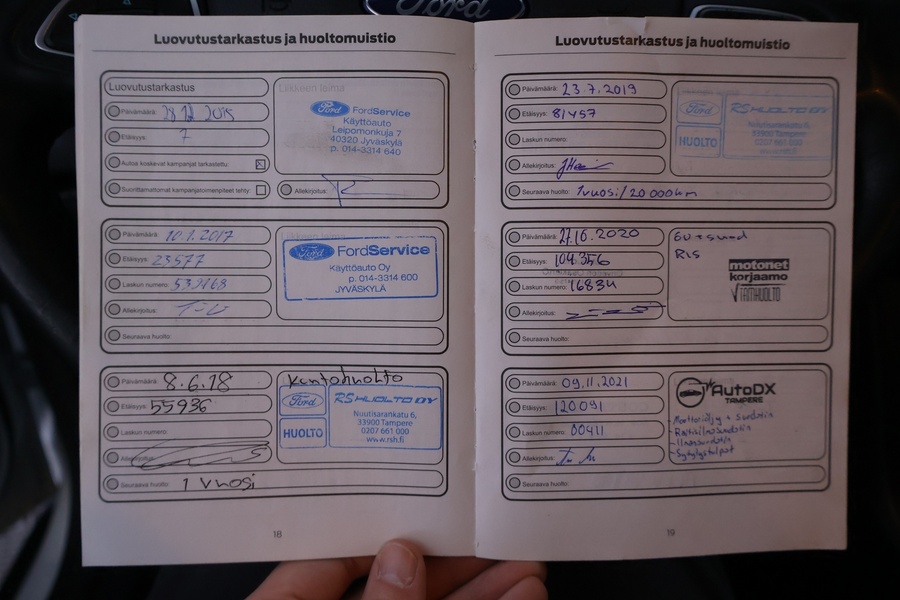 Ford
Luovutustarkastus ja huoltomuistio
Luovutustarkastus
Liikkeen leima
Päivämäärä: 28.12.2015
Etäisyys: 7
Autoa koskevat kampanjat tarkastettu:
Suorittamattomat kampanjatoimenpiteet tehty:
Ford FordService
Käyttöauto
Leipomonkuja 7
40320 Jyväskylä
p. 014-3314 640
Allekirjoitus:
Päivämäärä: 10.1.2017
Etäisyys: 23577
Laskun numero: 539468
Allekirjoitus:
Seuraava huolto:
Liikkeen leima
Ford FordService
Käyttöauto Oy
p. 014-3314 600
JYVÄSKYLÄ
Päivämäärä: 8.6.18
Etäisyys: 55936
Laskun numero:
Allekirjoitus:
Seuraava huolto: 1 vuosi
Kuntohuolto
Ford RS HUOLTO OY
HUOLTO
Nuutisarankatu 6,
33900 Tampere
0207 661 000
www.rsh.fi
18
Luovutustarkastus ja huoltomuistio
Päivämäärä: 23.7.2019
Etäisyys: 81457
Laskun numero:
Allekirjoitus:
Seuraava huolto: 1vuosi/20 000km
Ford RS HUOLTO OY
HUOLTO
Nuutisarankatu 6,
33900 Tampere
0207 661 000
www.rsh.fi
Päivämäärä: 27.10.2020
Etäisyys: 104.356
Laskun numero: 16834
Allekirjoitus:
Seuraava huolto:
motonet
korjaamo
TAMHUOLTO
Päivämäärä: 09.11.2021
Etäisyys: 120091
Laskun numero: 00411
Allekirjoitus:
Seuraava huolto:
AutoDX
TAMPERE
- Moottoriöljy + suodatin
- Raitisilmasuodatin
- Ilmansuodatin
- Sytytystulpat
19